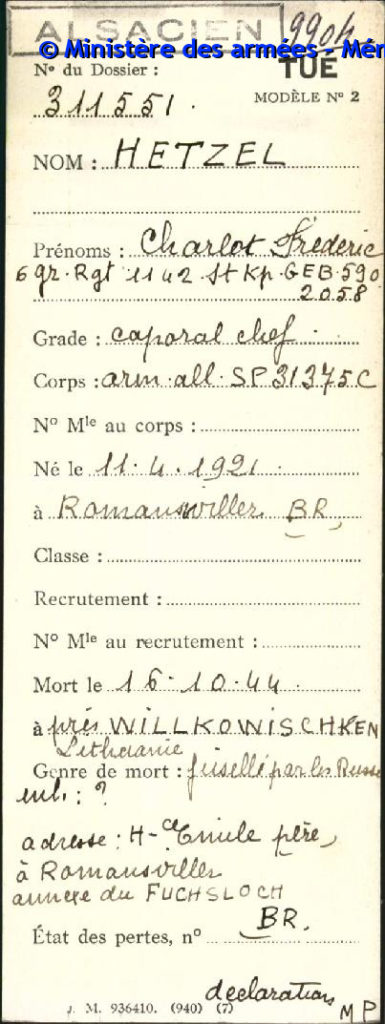 ALSACIEN 9904
© Ministère des armées - Mém
N° du Dossier : TUÉ
311551. MODÈLE N° 2
NOM : HETZEL
Prénoms : Charlot Fréderic
6 gr. Rgt 1142 St Kp. GEB. 590
2058
Grade : caporal chef
Corps : arm. all. SP 31375C
N° Mle au corps :
Né le 11.4.1921
à Romanswiller BR
Classe :
Recrutement :
N° Mle au recrutement :
Mort le 16.10.44
à près WILLKOWISCHKEN
Lithuanie
Genre de mort : fusillé par les Russe
inh. : ?
adresse : H-ce Emile père,
à Romanswiller
annexe du FUCHSLOCH
BR.
État des pertes, n°
declarations
J. M. 936410. (940) (7) M P